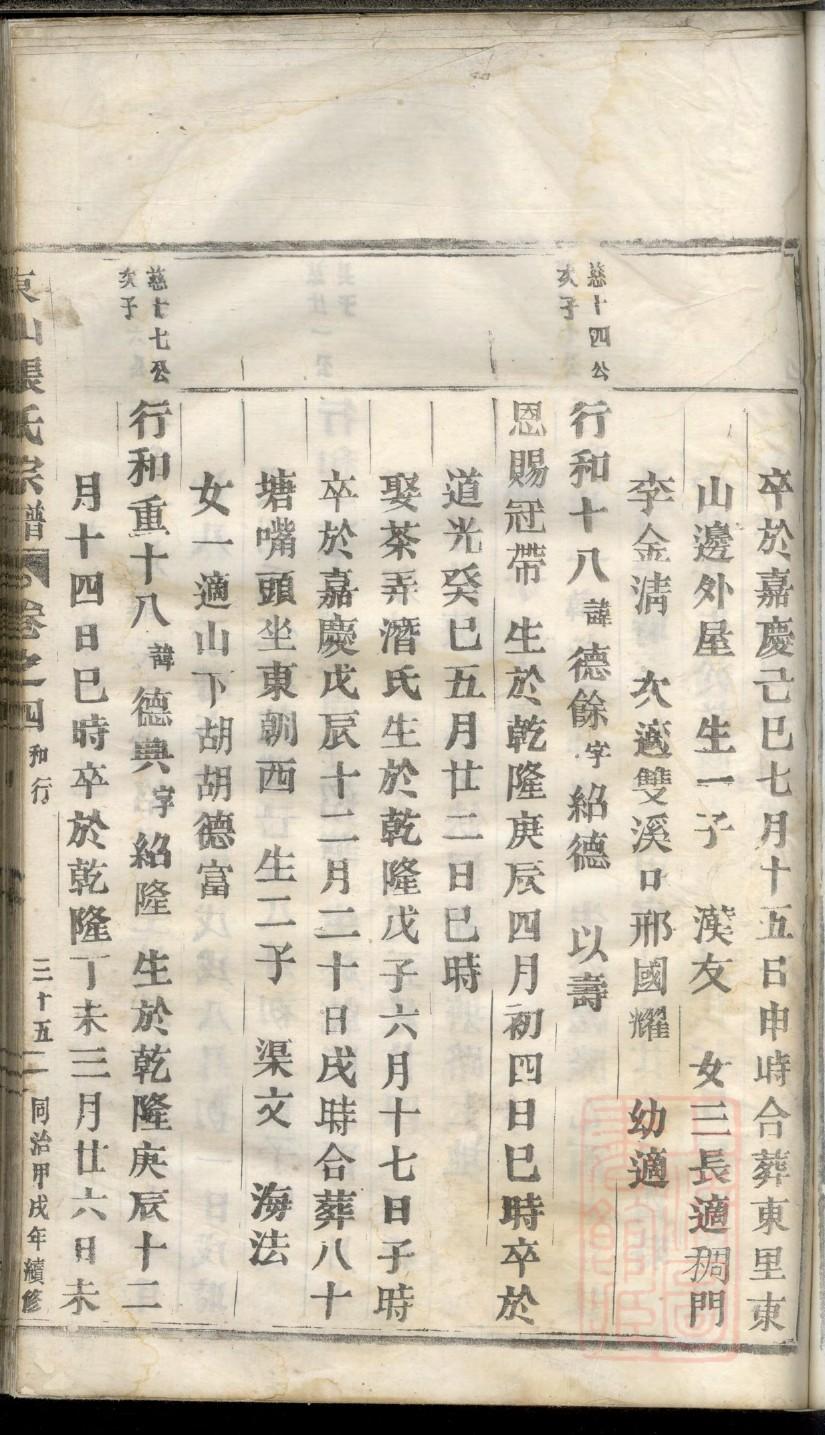 卒於嘉慶己巳七月十五日申時合葬東里東
山邊外屋 生一子 漢友 女三長適稠門
李金清 次適雙溪口邢國耀 幼適
慈十四公
次子
行和十八諱德餘字紹德 以壽
恩賜冠帶 生於乾隆庚辰四月初四日巳時卒於
道光癸巳五月廿二日巳時
娶茶弄潛氏生於乾隆戊子六月十七日子時
卒於嘉慶戊辰十二月二十日戌時合葬八十
塘嘴頭坐東朝西 生二子 渠文 海法
女一適山下胡胡德富
慈十七公
次子
行和重十八諱德典字紹隆 生於乾隆庚辰十二
月十四日巳時卒於乾隆丁未三月廿六日未
東山張氏宗譜 卷之四 和行 三十五 同治甲戌年續修